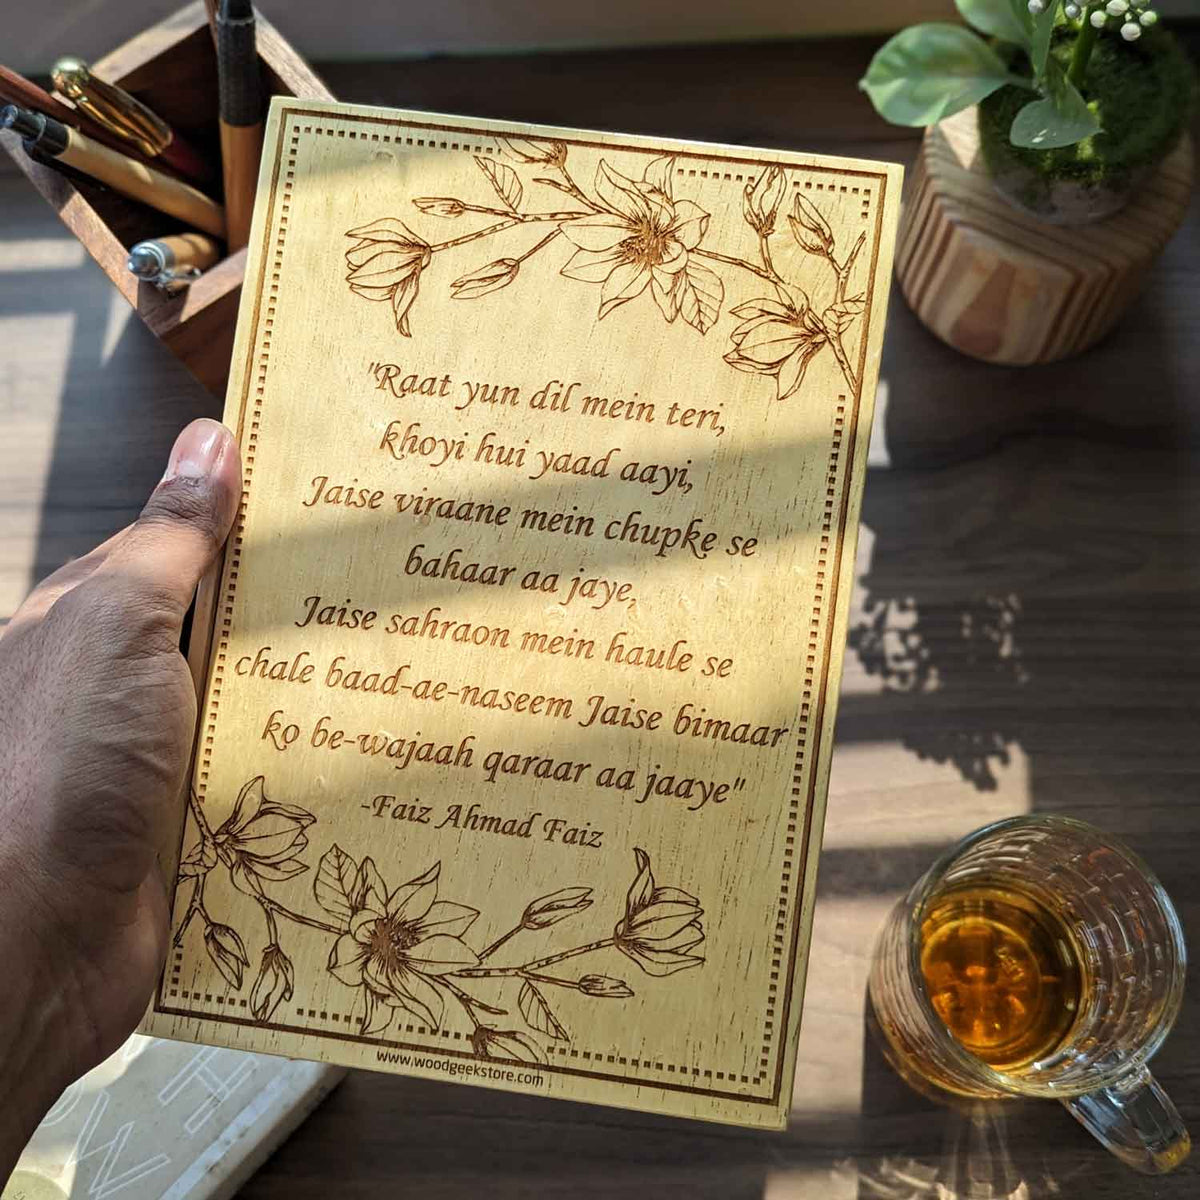 "Raat yun dil mein teri,
khoyi hui yaad aayi,
Jaise viraane mein chupke se
bahaar aa jaye,
Jaise sahraon mein haule se
chale baad-ae-naseem Jaise bimaar
ko be-wajaah qaraar aa jaaye"
-Faiz Ahmad Faiz
www.woodgeekstore.com